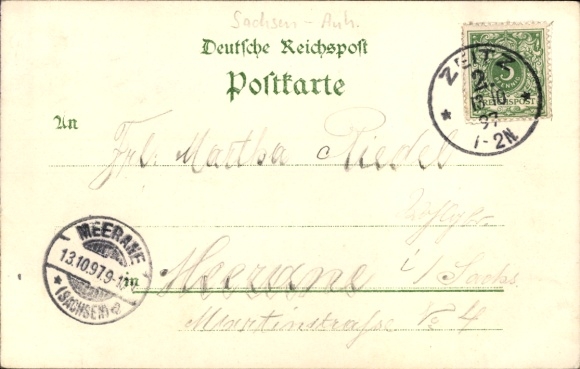 Sachsen-Anh.
Deutsche Reichspost
Postkarte
ZEITZ
2
13 10
97
1-2N.
5
REICHSPOST
An
Frl. Martha Riedel
MEERANE
13.10.97.9-
(SACHSEN)
in Meerane i/Sachs.
Martinstrasse No 4